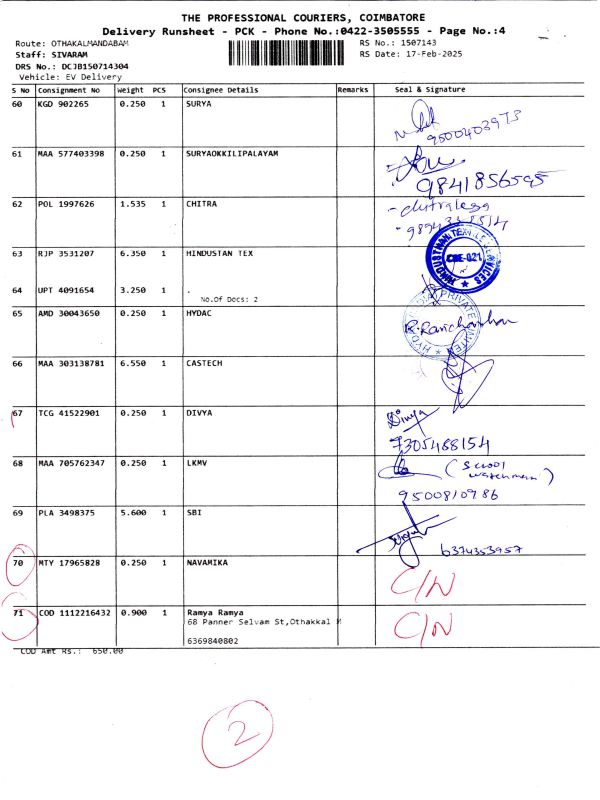 THE PROFESSIONAL COURIERS, COIMBATORE
Delivery Runsheet - PCK - Phone No.:0422-3505555 - Page No.:4
Route: OTHAKALMANDABAM
RS No.: 1507143
Staff: SIVARAM
RS Date: 17-Feb-2025
DRS No.: DCJB150714304
Vehicle: EV Delivery
S No Consignment No Weight PCS Consignee Details Remarks Seal & Signature
60 KGD 902265 0.250 1 SURYA
9500403973
61 MAA 577403398 0.250 1 SURYAOKKILIPALAYAM
9841856595
62 POL 1997626 1.535 1 CHITRA
63 RJP 3531207 6.350 1 HINDUSTAN TEX
CBE-021
64 UPT 4091654 3.250 1 .
No.Of Docs: 2
65 AMD 30043650 0.250 1 HYDAC
R. Ravichandran
66 MAA 303138781 6.550 1 CASTECH
67 TCG 41522901 0.250 1 DIVYA
Divya
7305488154
68 MAA 705762347 0.250 1 LKMV
(School watchman)
9500810986
69 PLA 3498375 5.600 1 SBI
6374353957
70 MTY 17965828 0.250 1 NAVAMIKA
C/N
71 COD 1112216432 0.900 1 Ramya Ramya
68 Panner Selvam St,Othakkal M
C/N
6369840802
COD Amt Rs.: 650.00
2